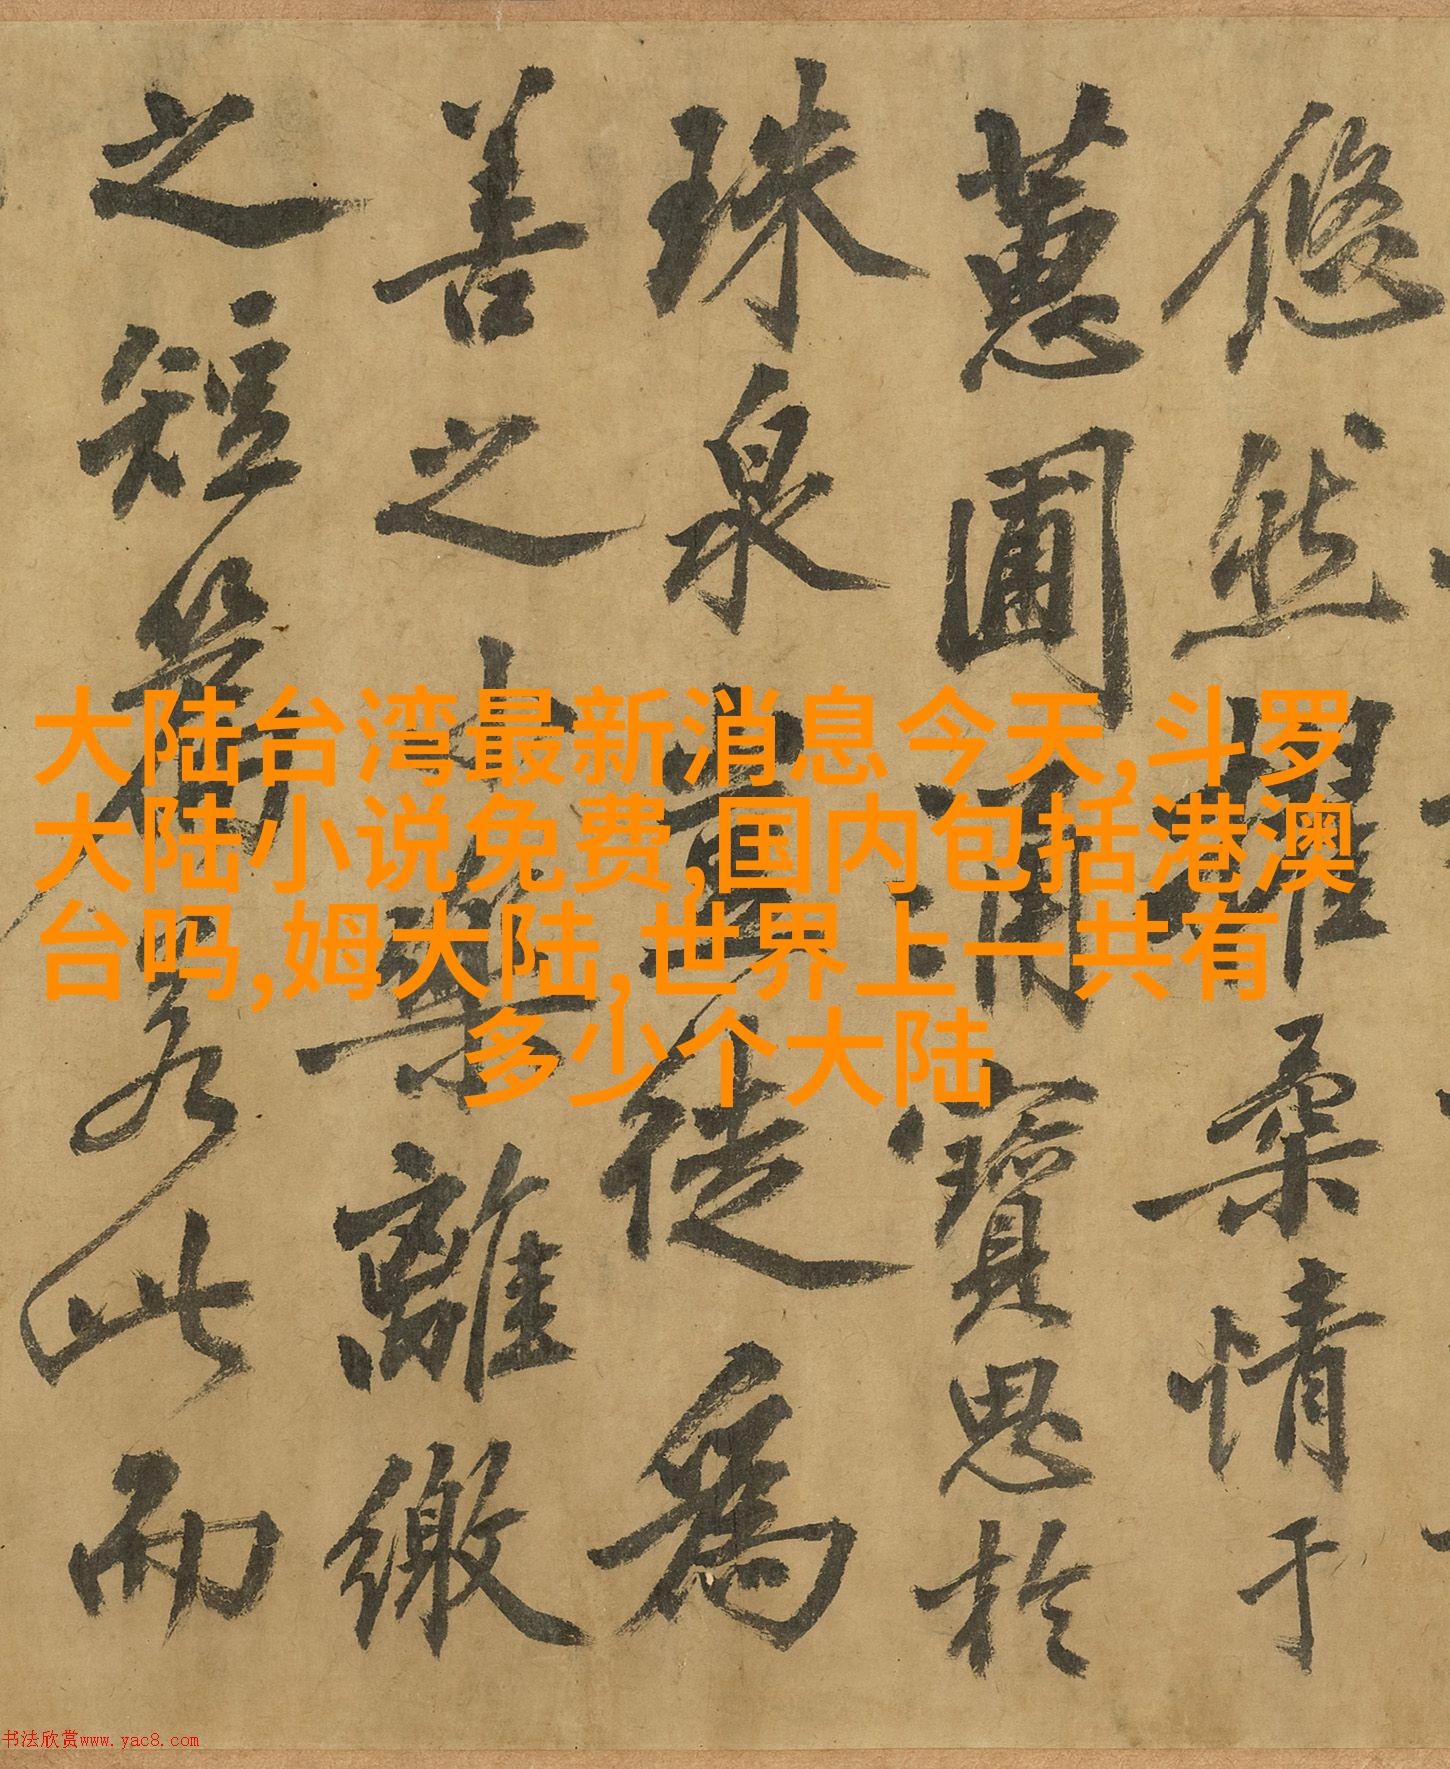 悠然柔情于
蕙圃寶思於
珠泉豈徒為
善之小樂離繳
之短篇若此而
大陆台湾最新消息今天,斗罗
大陆小说免费,国内包括港澳
台吗,姆大陆,世界上一共有
多少个大陆
书法欣赏www.yac8.com